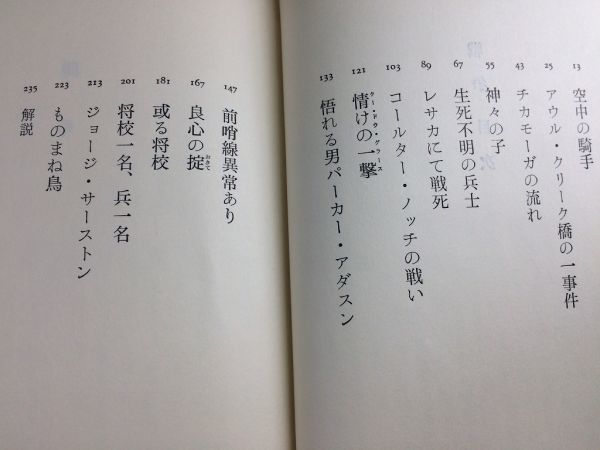 13 空中の騎手
25 アウル・クリーク橋の一事件
43 チカモーガの流れ
55 神々の子
67 生死不明の兵士
89 レサカにて戦死
103 コールター・ノッチの戦い
121 情けの一撃
クー・ドウ・グラース
133 悟れる男パーカー・アダスン
147 前哨線異常あり
167 良心の掟
おきて
181 或る将校
201 将校一名、兵一名
213 ジョージ・サーストン
223 ものまね鳥
235 解説